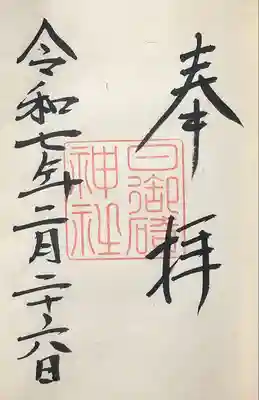 奉拝
日御碕神社
令和七年二月二十六日